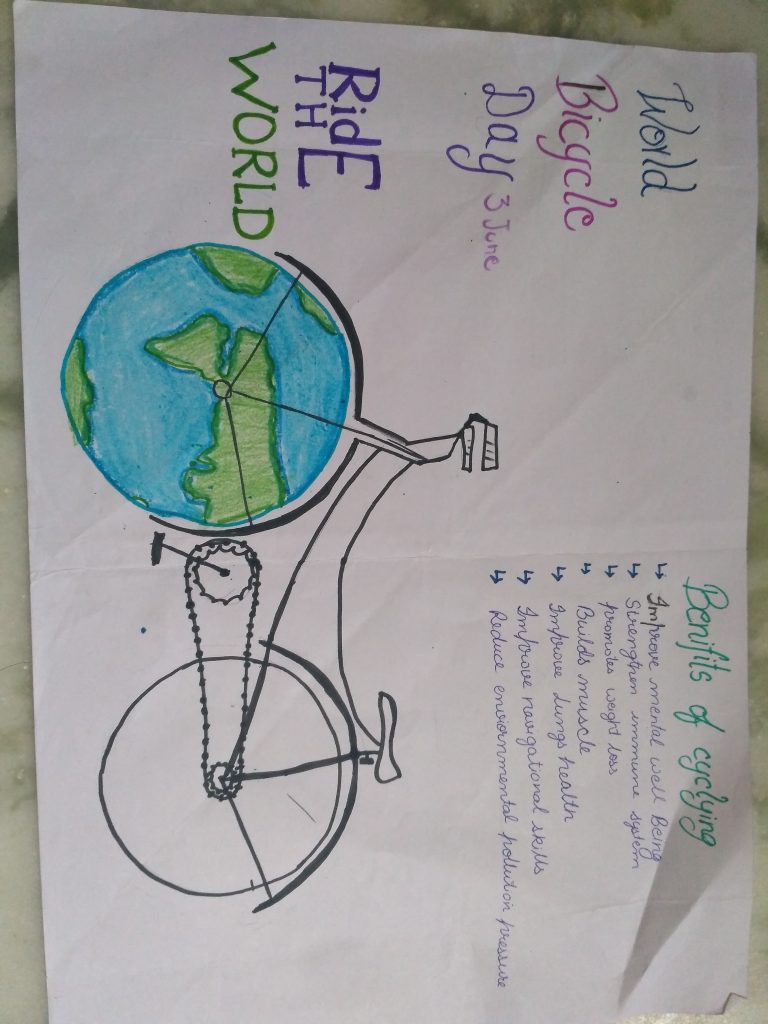 World
Bicycle
Day 3 June
RidE
THE
WORLD
Benifits of cyclying
↳ Improve mental well Being
↳ Strengthen immune system
↳ promotes weight loss
↳ Builds muscle
↳ Improve lungs health
↳ Improve navigational skills
↳ Reduce enviornmental pollution pressure